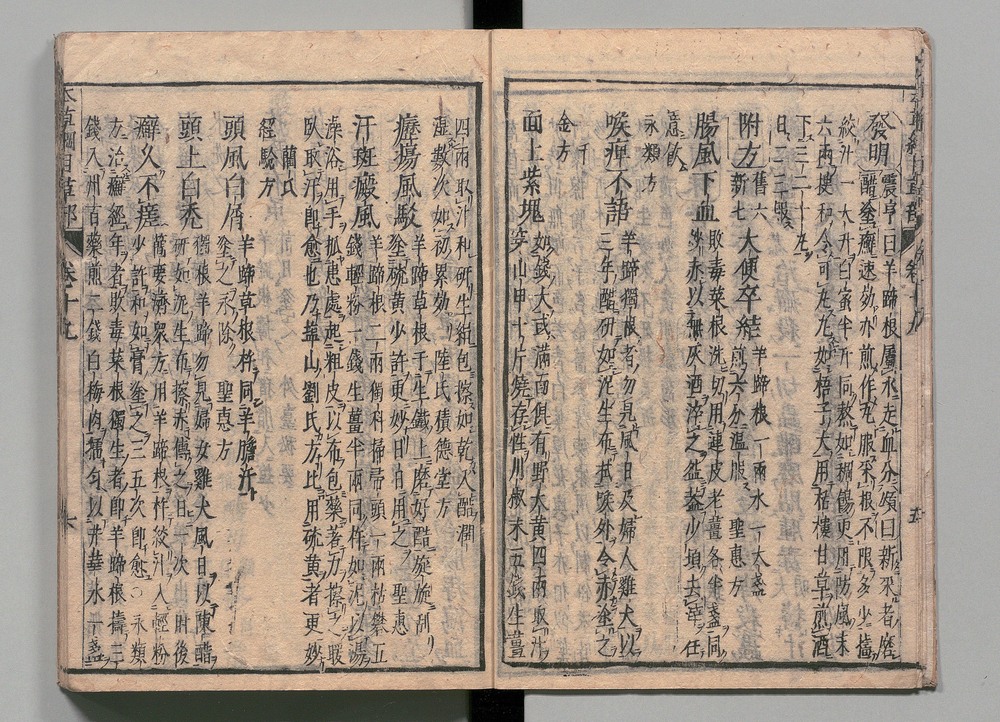 發明震亨曰羊蹄根屬水走血分頌曰新采者磨
醋塗癬速効亦煎作丸服采根不限多少搗
絞汁一大升白蜜半升同熬如稠餳更用防風末
六兩搜和令可丸丸如梧子大用栝樓甘草煎酒
下三二十丸
日二三服
附方舊六新七
大便卒結羊蹄根一兩水一大盞煎六分温服
聖惠方
腸風下血敗毒菜根洗切用連皮老薑各半盞同
炒赤以無灰酒淬之盌盖少頃去滓任
意飲
永類方
喉痺不語羊蹄獨根者勿見風日及婦人雞犬以
三年醋研如泥生布拭喉外令赤塗之
千金方
面上紫塊如錢大或滿面俱有野大黄四兩取汁
穿山甲十片燒存性川椒末五錢生薑
四兩取汁和研生絹包擦如乾入醋潤
濕數次如初累効
陸氏積德堂方
癧瘍風駁羊蹄草根于生鐵上磨好醋旋旋刮
塗硫黄少許更妙日日用之
聖惠
汗斑癜風羊蹄根二兩獨科掃帚頭一兩枯礬五
錢輕粉一錢生薑半兩同杵如泥以湯
澡浴用手抓患處起粗皮以布包藥着力擦之暖
臥取汗即愈也乃盬山劉氏方比用硫黄者更妙
藺氏經驗方
頭風白屑羊蹄草根杵同羊膽汁
塗之永除
聖惠方
頭上白禿獨根羊蹄勿見婦女雞犬風日以陳醋
研如泥生布擦赤傅之日一次
肘後
癬久不瘥簡要濟衆方用羊蹄根杵絞汁入輕粉
少許和如膏塗之三五次即愈○永類
方治癬經年者敗毒菜根獨生者即羊蹄根擣三
錢入川百藥煎二錢白梅肉擂勻以井華水一盞
本草綱目草部
卷十九